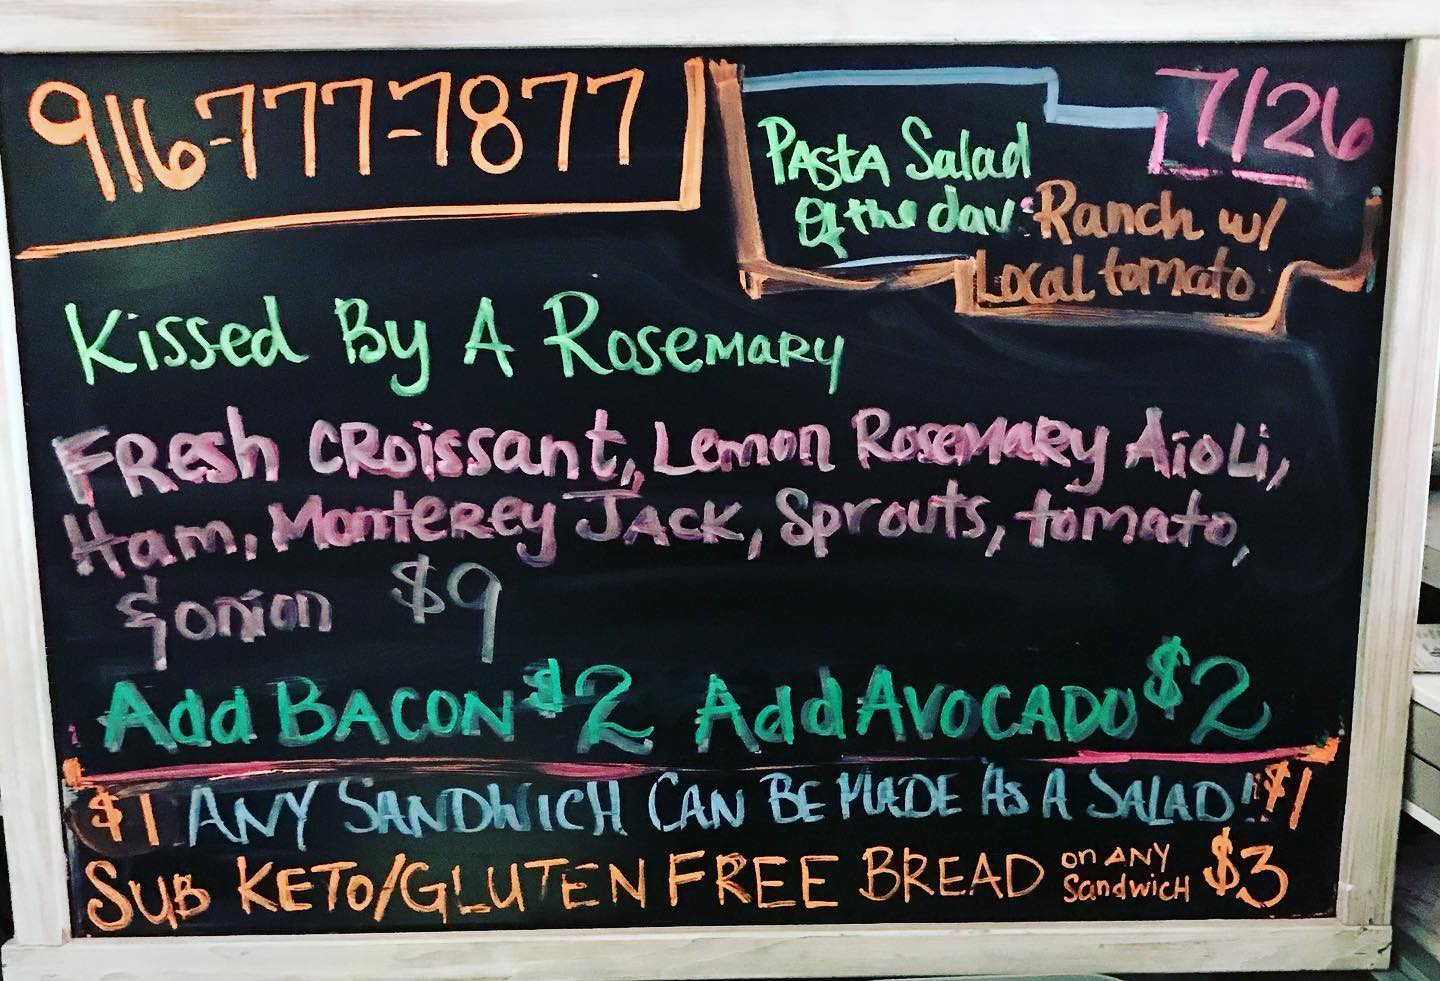 916-777-7877
7/26
PAStA Salad
of the day: Ranch w/
Local tomato
Kissed By A Rosemary
Fresh CRoissant, Lemon Rosemary Aioli,
Ham, Monterey Jack, Sprouts, tomato,
& onion $9
Add BACON $2 Add AVOCADO $2
$1 ANY SANDWICH CAN BE MADE AS A SALAD! $1
SUB KETO/GLUTEN FREE BREAD on ANY Sandwich $3